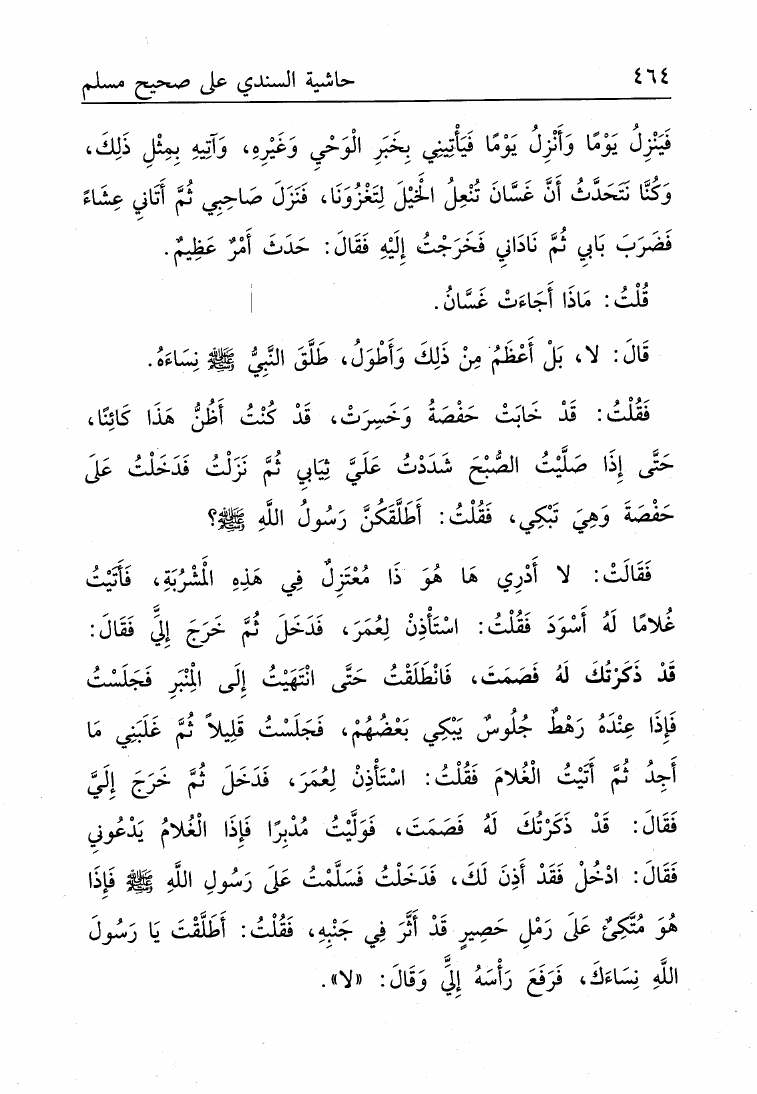 ٤٦٤ حاشية السندي على صحيح مسلم
فَيَنْزِلُ يَوْمًا وَأَنْزِلُ يَوْمًا فَيَأْتِينِي بِخَبَرِ الْوَحْيِ وَغَيْرِهِ، وَآتِيهِ بِمِثْلِ ذَلِكَ،
وَكُنَّا نَتَحَدَّثُ أَنَّ غَسَّانَ تُنْعِلُ الْخَيْلَ لِتَغْزُوَنَا، فَنَزَلَ صَاحِبِي ثُمَّ أَتَانِي عِشَاءً
فَضَرَبَ بَابِي ثُمَّ نَادَانِي فَخَرَجْتُ إِلَيْهِ فَقَالَ: حَدَثَ أَمْرٌ عَظِيمٌ.
قُلْتُ: مَاذَا أَجَاءَتْ غَسَّانُ.
قَالَ: لا، بَلْ أَعْظَمُ مِنْ ذَلِكَ وَأَطْوَلُ، طَلَّقَ النَّبِيُّ ﷺ نِسَاءَهُ.
فَقُلْتُ: قَدْ خَابَتْ حَفْصَةُ وَخَسِرَتْ، قَدْ كُنْتُ أَظُنُّ هَذَا كَائِنًا،
حَتَّى إِذَا صَلَّيْتُ الصُّبْحَ شَدَدْتُ عَلَيَّ ثِيَابِي ثُمَّ نَزَلْتُ فَدَخَلْتُ عَلَى
حَفْصَةَ وَهِيَ تَبْكِي، فَقُلْتُ: أَطَلَّقَكُنَّ رَسُولُ اللَّهِ ﷺ؟
فَقَالَتْ: لا أَدْرِي هَا هُوَ ذَا مُعْتَزِلٌ فِي هَذِهِ الْمَشْرُبَةِ، فَأَتَيْتُ
غُلامًا لَهُ أَسْوَدَ فَقُلْتُ: اسْتَأْذِنْ لِعُمَرَ، فَدَخَلَ ثُمَّ خَرَجَ إِلَيَّ فَقَالَ:
قَدْ ذَكَرْتُكَ لَهُ فَصَمَتَ، فَانْطَلَقْتُ حَتَّى انْتَهَيْتُ إِلَى الْمِنْبَرِ فَجَلَسْتُ
فَإِذَا عِنْدَهُ رَهْطٌ جُلُوسٌ يَبْكِي بَعْضُهُمْ، فَجَلَسْتُ قَلِيلاً ثُمَّ غَلَبَنِي مَا
أَجِدُ ثُمَّ أَتَيْتُ الْغُلامَ فَقُلْتُ: اسْتَأْذِنْ لِعُمَرَ، فَدَخَلَ ثُمَّ خَرَجَ إِلَيَّ
فَقَالَ: قَدْ ذَكَرْتُكَ لَهُ فَصَمَتَ، فَوَلَّيْتُ مُدْبِرًا فَإِذَا الْغُلامُ يَدْعُونِي
فَقَالَ: ادْخُلْ فَقَدْ أَذِنَ لَكَ، فَدَخَلْتُ فَسَلَّمْتُ عَلَى رَسُولِ اللَّهِ ﷺ فَإِذَا
هُوَ مُتَّكِئٌ عَلَى رَمْلِ حَصِيرٍ قَدْ أَثَّرَ فِي جَنْبِهِ، فَقُلْتُ: أَطَلَّقْتَ يَا رَسُولَ
اللَّهِ نِسَاءَكَ، فَرَفَعَ رَأْسَهُ إِلَيَّ وَقَالَ: «لا».